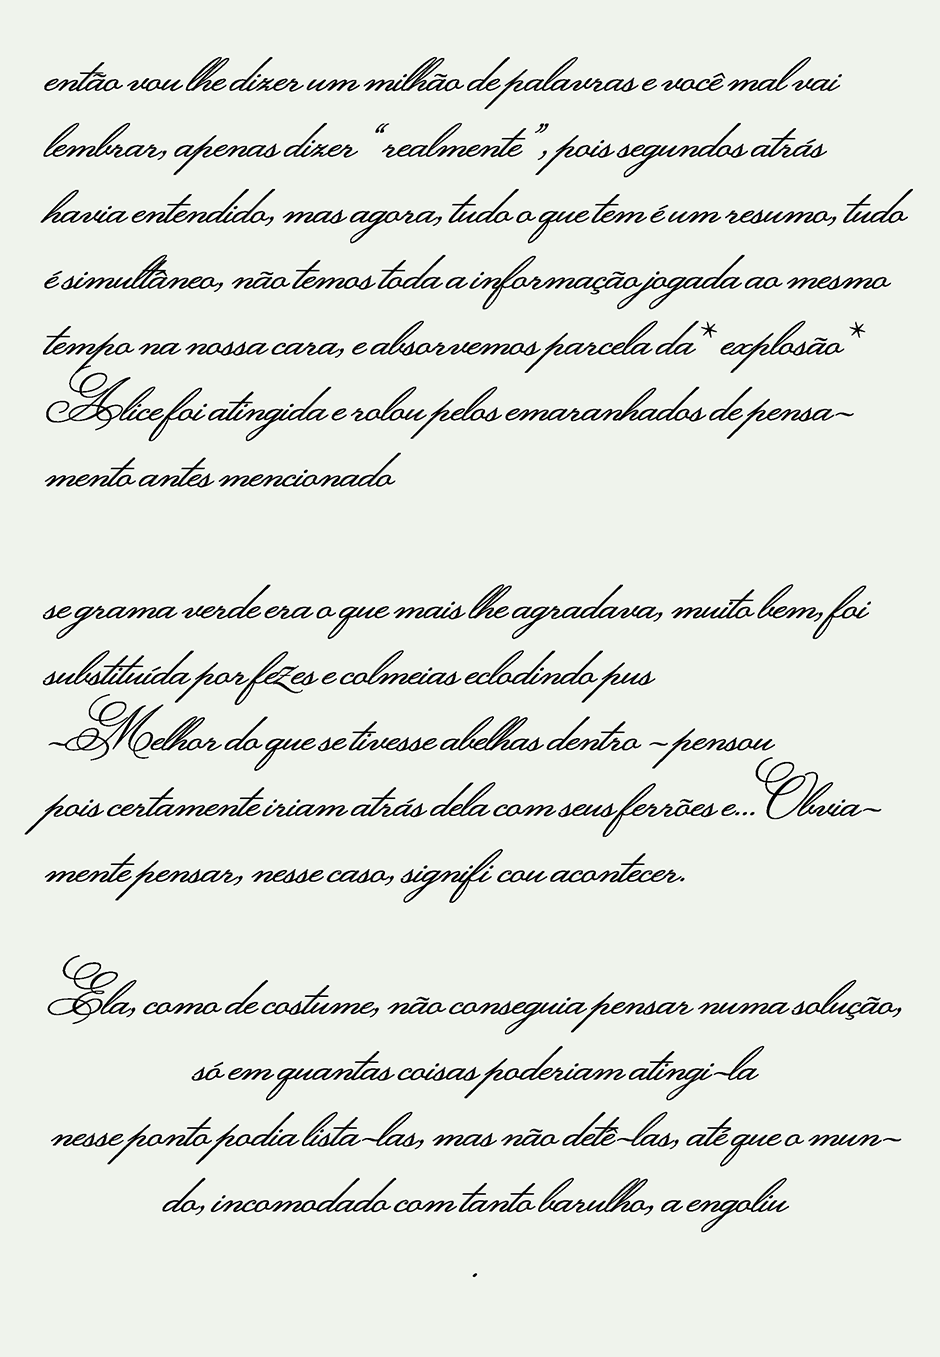 então vou lhe dizer um milhão de palavras e você mal vai
lembrar, apenas dizer “realmente”, pois segundos atrás
havia entendido, mas agora, tudo o que tem é um resumo, tudo
é simultâneo, não temos toda a informação jogada ao mesmo
tempo na nossa cara, e absorvemos parcela da* explosão*
Alice foi atingida e rolou pelos emaranhados de pensa-
mento antes mencionado
se grama verde era o que mais lhe agradava, muito bem, foi
substituída por fezes e colmeias eclodindo pus
-Melhor do que se tivesse abelhas dentro - pensou
pois certamente iriam atrás dela com seus ferrões e... Obvia-
mente pensar, nesse caso, signifi cou acontecer.
Ela, como de costume, não conseguia pensar numa solução,
só em quantas coisas poderiam atingi-la
nesse ponto podia lista-las, mas não detê-las, até que o mun-
do, incomodado com tanto barulho, a engoliu
.